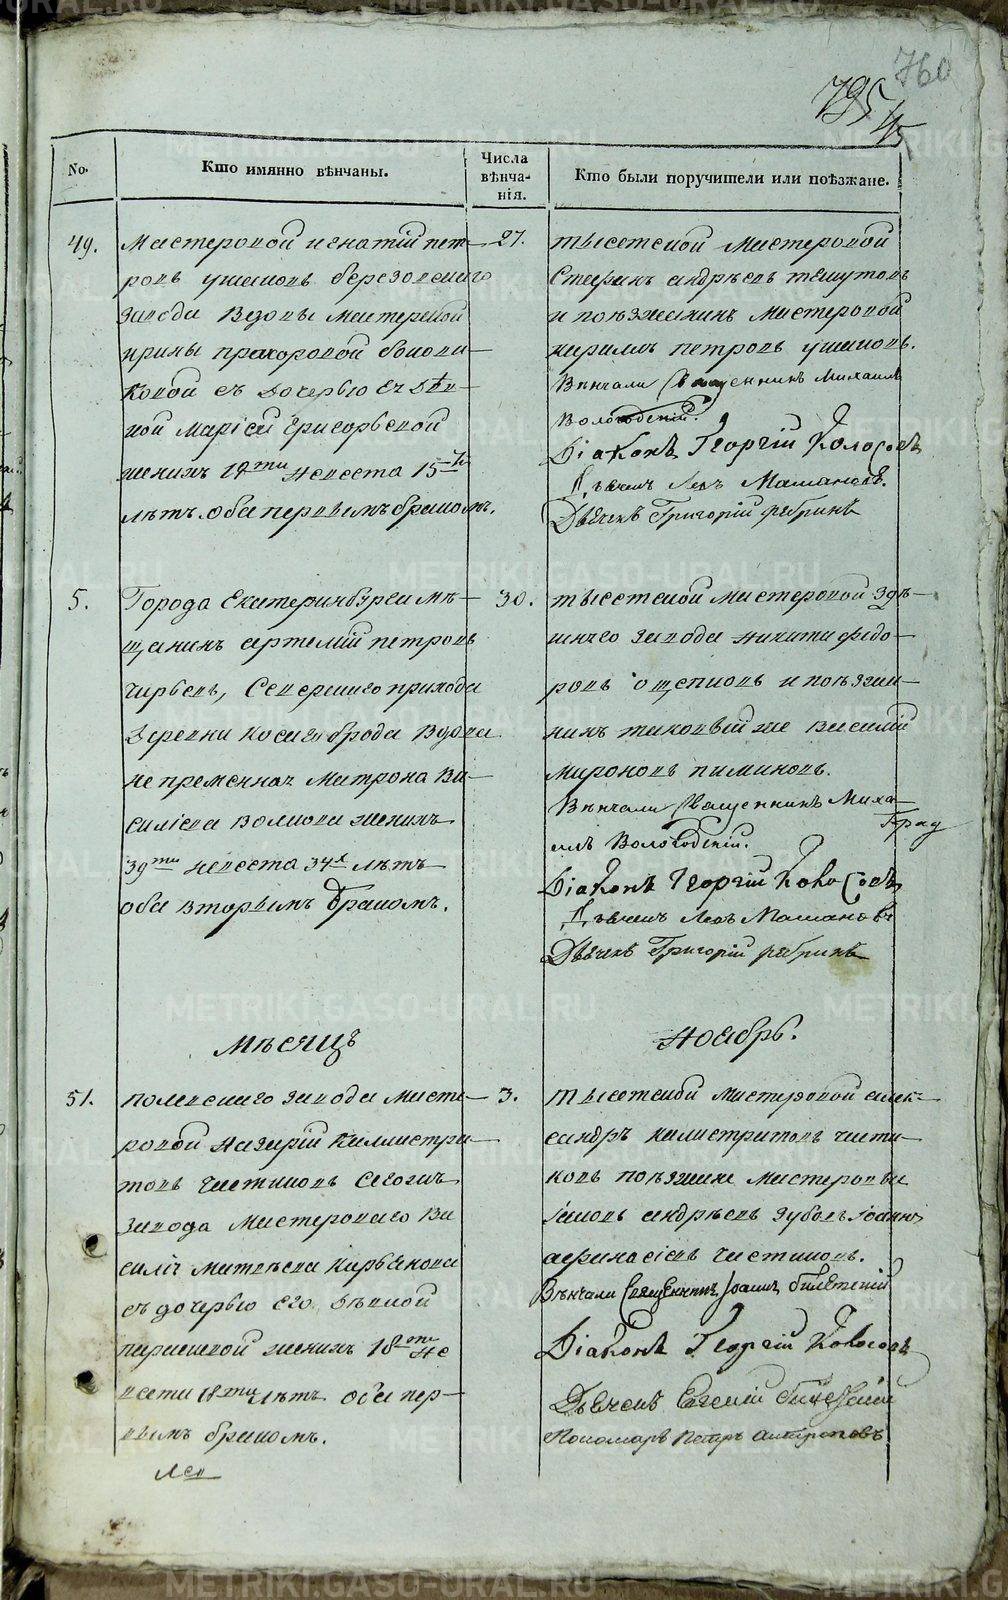 760
795
45
No.
Кто имянно вѣнчаны.
Числа
вѣнча-
нія.
Кто были поручители или поѣзжане.
49.
Мастеровой игнатій пет-
ровъ ушаковъ березовскаго
завода Вдовы мастерской
ирины прохоровой
ковой съ дочерью ея дѣв-
кой Маріей
женихъ 19ти невеста 15ти
лѣтъ оба первымъ бракомъ.
27.
тысетской Мастеровой
Стефанъ андрѣевъ
и поѣзжанинъ Мастеровой
кирилъ петровъ ушаковъ.
Вѣнчали Священникъ Михаилъ
Вологодскій.
Діаконъ Георгій Колосовъ
Дьячекъ Левъ
Дьячекъ Григорій рябринъ
5.
Города Екатеринбурга мѣ-
щанинъ артемій петровъ
Северскаго прихода
деревни косаго брода вдова
непременная Матрона ва-
силіева волкова женихъ
39ти невеста 34х лѣтъ
оба вторымъ бракомъ.
30.
тысетской мастеровой здѣ-
шняго завода никита федо-
ровъ ощепковъ и поѣзжа-
нинъ таковый же василій
мироновъ пиминовъ.
Вѣнчали Священникъ Миха-
илъ Вологодскій.
Град
Діаконъ Георгій Колосовъ
Дьячекъ Левъ
Дьячекъ Григорій рябринъ
Мѣсяцъ
Ноябрь.
51.
полевскаго завода масте-
ровой назарій каллистра-
товъ чистяковъ сегожъ
завода Мастероваго ва
силія матвѣева
съ дочерью его дѣвкой
женихъ 18ти не
веста 18ти лѣтъ оба пер-
вымъ бракомъ.
3.
тысетской мастеровой алек-
сандръ калистратовъ чистя-
ковъ поѣзжане мастеровые
іаковъ андрѣевъ зубовъ іоаннъ
афанасіевъ чистяковъ.
Вѣнчали Священникъ Іоаннъ
Діаконъ Георгій Колосовъ
Дьячекъ Евгеній
Пономарь Петръ антроповъ
Лев
METRIKI.GASO-URAL.RU